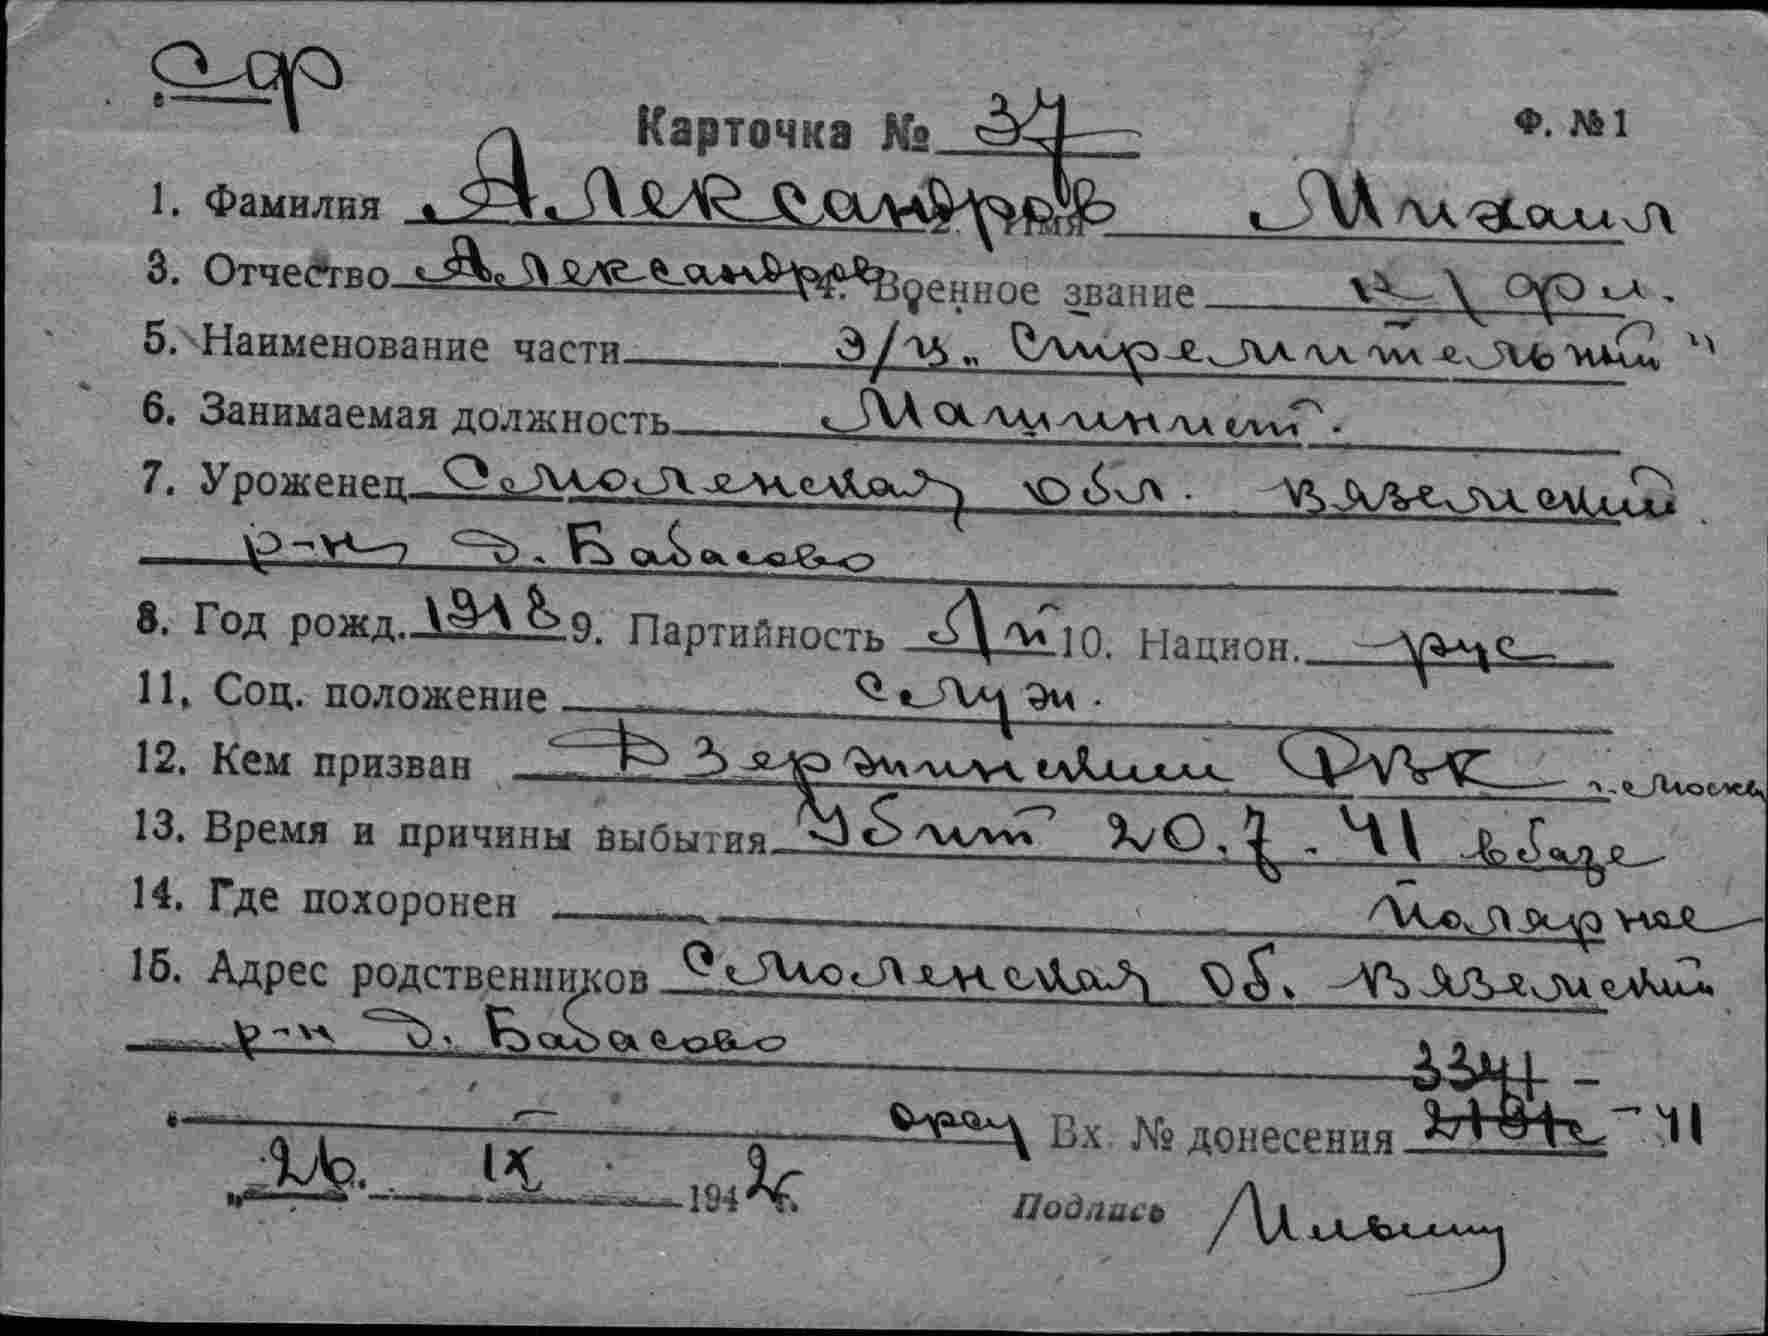 сф
Карточка № 37 Ф. № 1
1. Фамилия Александров 2. Имя Михаил
3. Отчество Александров 4. Военное звание к/ф
5. Наименование части Э/м „Стремительный"
6. Занимаемая должность Машинист.
7. Уроженец Смоленская обл. Вяземский
р-н д. Бабасово
8. Год рожд. 1918 9. Партийность 10. Национ. рус
11. Соц. положение служ.
12. Кем призван Дзержинским РВК г. Москвы
13. Время и причины выбытия Убит 20.7.41 в базе
14. Где похоронен Полярное
15. Адрес родственников Смоленская об. Вяземский
р-н д. Бабасово
334
Вх. № донесения - 41
„ 26. IX 1942 г.
Подпись